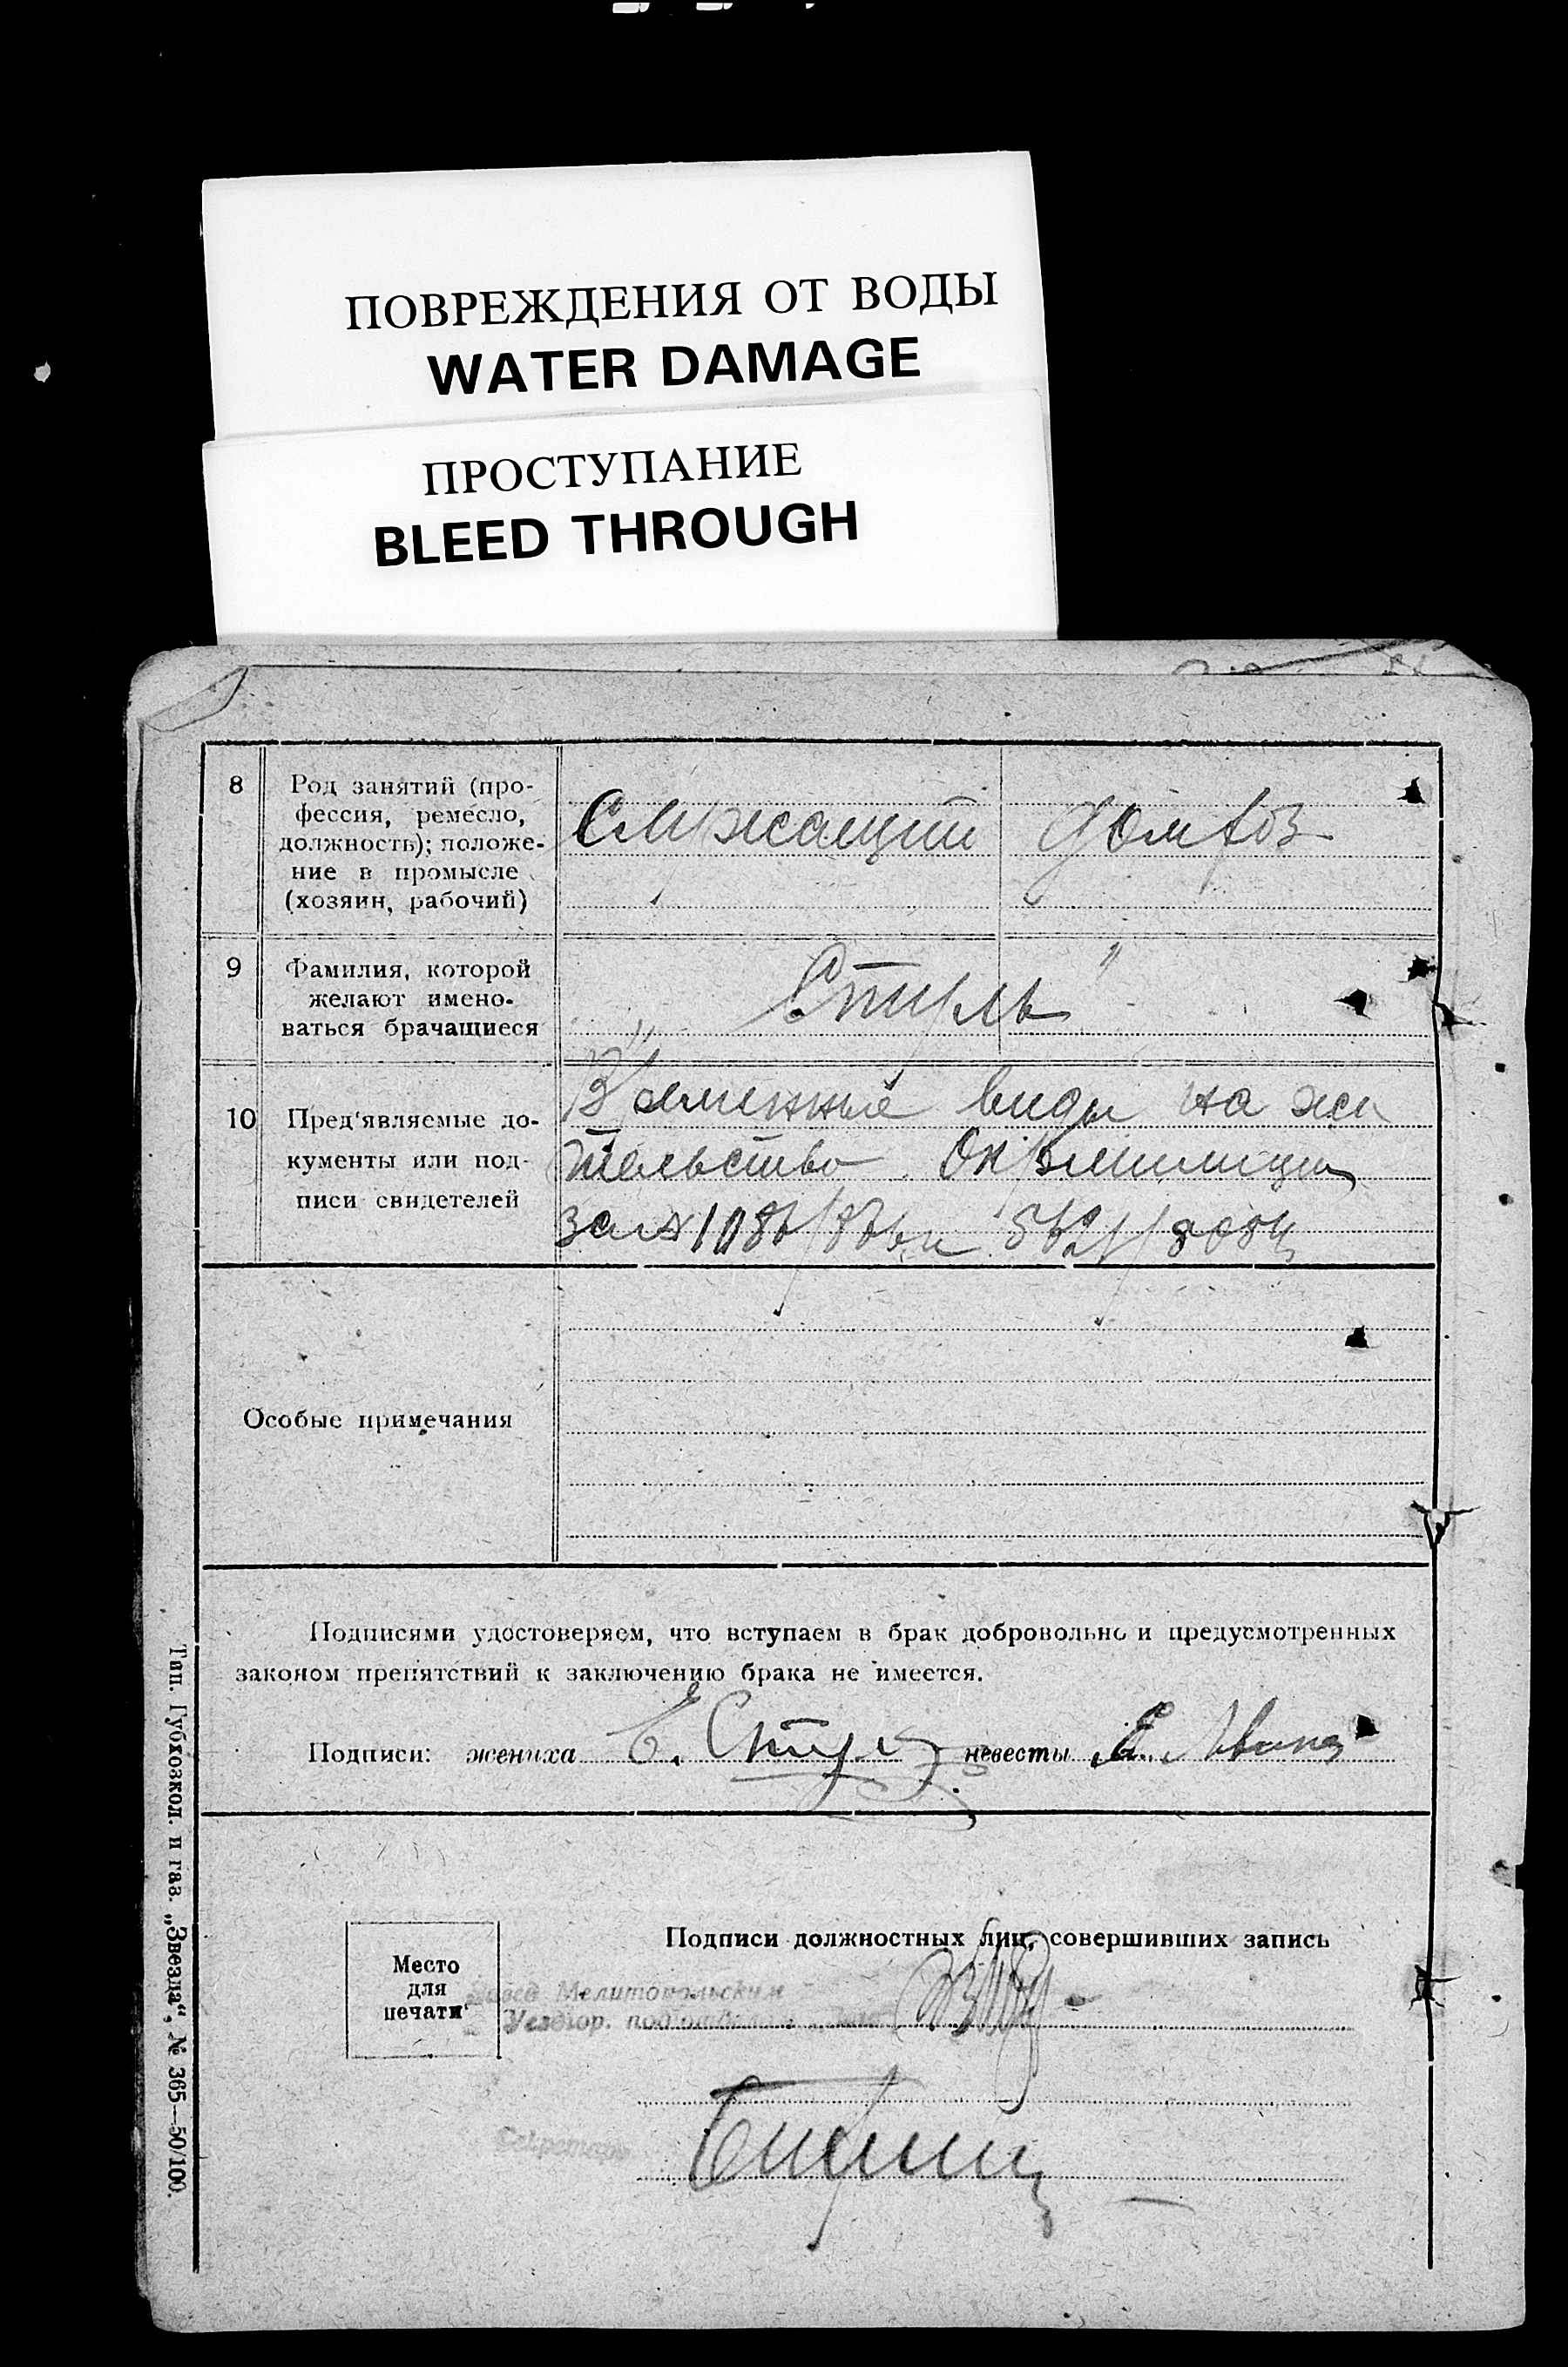 ПОВРЕЖДЕНИЯ ОТ ВОДЫ
WATER DAMAGE
ПРОСТУПАНИЕ
BLEED THROUGH
8
Род занятий (про-
фессия, ремесло,
должность); положе-
ние в промысле
(хозяин, рабочий)
Служащий
домхоз
9
Фамилия, которой
желают имено-
ваться брачащиеся
„ Стуль "
10
Пред'являемые до-
кументы или под-
писи свидетелей
Временные виды на жи
тельство Окрмилиции
за №
Особые примечания
Подписями удостоверяем, что вступаем в брак добровольно и предусмотренных
законом препятствий к заключению брака не имеется.
Подписи: жениха Е. невесты
Подписи должностных лиц, совершивших запись
Место
для
печати
Завед. Мелитопольским
Уездгор. под'отделом
Секретарь
Тип. Губхозкол. и газ. „Звезда“, № 365—50/100.